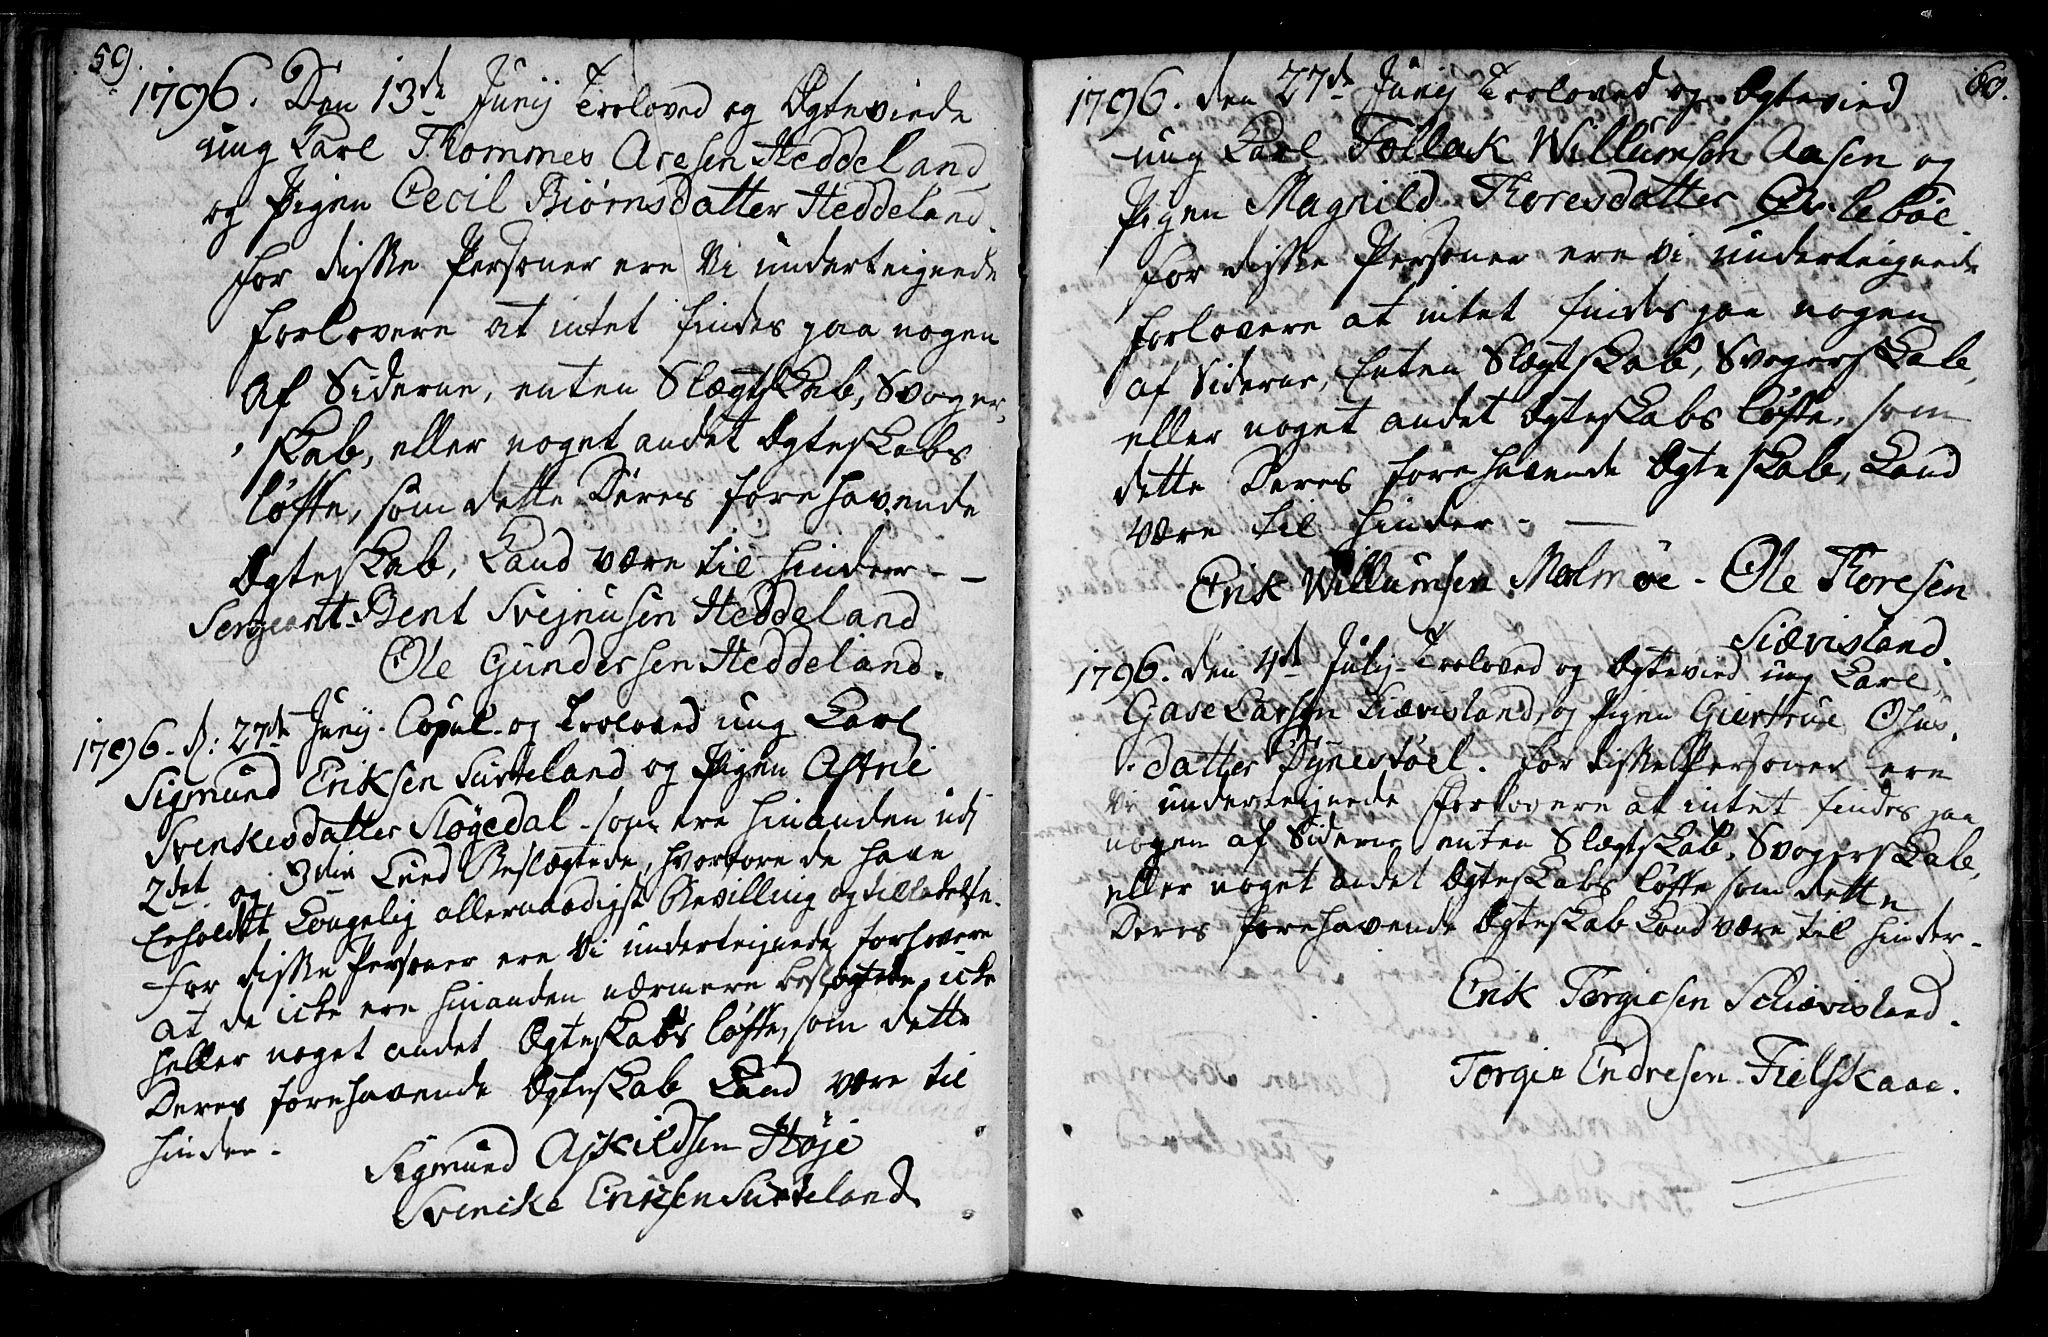 59.
1796. Den 13de Junij Troloved og Ægteviede
ung Karl Thommes Aresen Heddeland
og Pigen Cecil Biørnsdatter Heddeland.
for disse Personer ere Vi underteignede
Forlovere at intet findes paa nogen
Af Siderne, enten Slægtskab, Svoger,
skab, eller noget andet Ægteskabs
løfte, som dette Deres forehavende
Ægteskab, Kand være til Hinder - -
Sergeant Bent Svejnusen Heddeland
Ole Gundersen Heddeland.
1796. d: 27de Junij. Copul. og Troloved ung Karl
Sigmund Eriksen Surteland og Pigen Astrie
Svenkesdatter Sløgedal - som ere hinanden udi
2det og 3die Leed Beslægtede, hvorfore de have
Erholdet Kongelig allernaadigst Bevilling og tilladelse.
for disse Personer ere Vi underteignede Forlovere
at de icke ere hinanden nærmere beslægtede, icke
heller noget andet Ægteskabs løfte, som dette
Deres forehavende Ægteskab Kand være til
Hinder.
Sigmund Askildsen Høje
Svenke Eriksen Surteland
60.
1796. den 27de Junij Troloved og Ægtevied
ung Karl Tollak Willumsen Aasen og
Pigen Magnild Thoresdatter Øvlebøe.
for disse Personer ere vi underteignede
Forlovere at intet findes paa nogen
af Siderne, Enten Slægtskab, Svogerskab,
eller noget andet Ægteskabs løfte, som
dette Deres forehavende Ægteskab, Kand
være til Hinder -
Erik Willumsen Malmøe - Ole Thoresen
Siævisland.
1796. den 4de Julij Troloved og Ægtevied ung Karl
Gase Larsen Siævisland, og Pigen Giertrue Ohus,
datter Dynestøel. for disse Personer ere
Vi underteignede Forlovere at intet findes paa
nogen af Siderne enten Slægtskab, Svogerskab,
eller noget andet Ægteskabs løfte som dette
Deres forehavende Ægteskab Kand være til Hinder -
Erik Torgiesen Schiævisland.
Torgie Endresen Fielskaae.